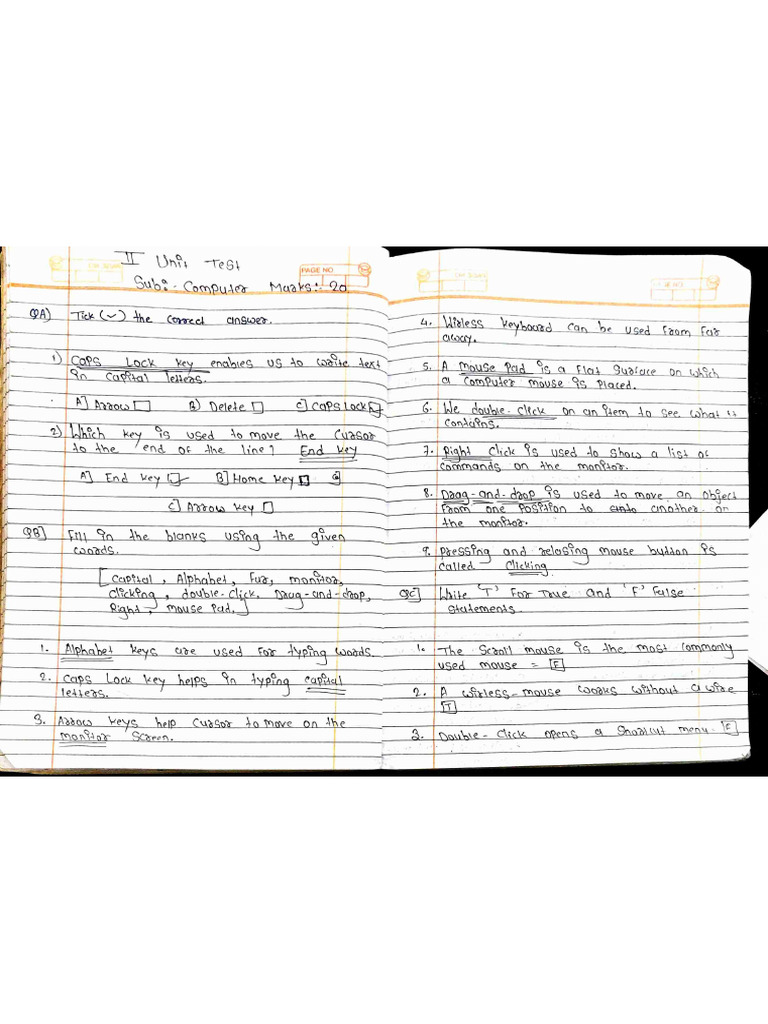 II Unit Test
PAGE NO
Sub:- Computer Marks:- 20
QA) Tick (✓) the correct answer.
1) Caps Lock key enables us to write text
in capital letters.
A] Arrow □ B) Delete □ C] Caps Lock ☑
2) Which key is used to move the cursor
to the end of the line? End key
A] End key ☑ B] Home key □
C] Arrow key □
QB] Fill in the blanks using the given
words.
[capital, Alphabet, Far, monitor,
clicking, double-click. Drag-and-drop,
Right, mouse Pad.]
1. Alphabet keys are used for typing words.
2. Caps Lock key helps in typing capital
letters.
3. Arrow keys help cursor to move on the
monitor screen.
4. Wirless keyboard can be used from far
away.
5. A mouse pad is a flat surface on which
a computer mouse is placed.
6. We double-click on an item to see what it
contains.
7. Right click is used to show a list of
commands on the monitor.
8. Drag-and-drop is used to move an object
from one position to another on
the monitor.
9. pressing and relasing mouse button is
called Clicking
QC] Write 'T' for True and 'F' False
statements.
1. The Scroll mouse is the most commonly
used mouse = [F]
2. A wireless-mouse works without a wire
[T]
3. Double-click opens a shortcut menu- [F]